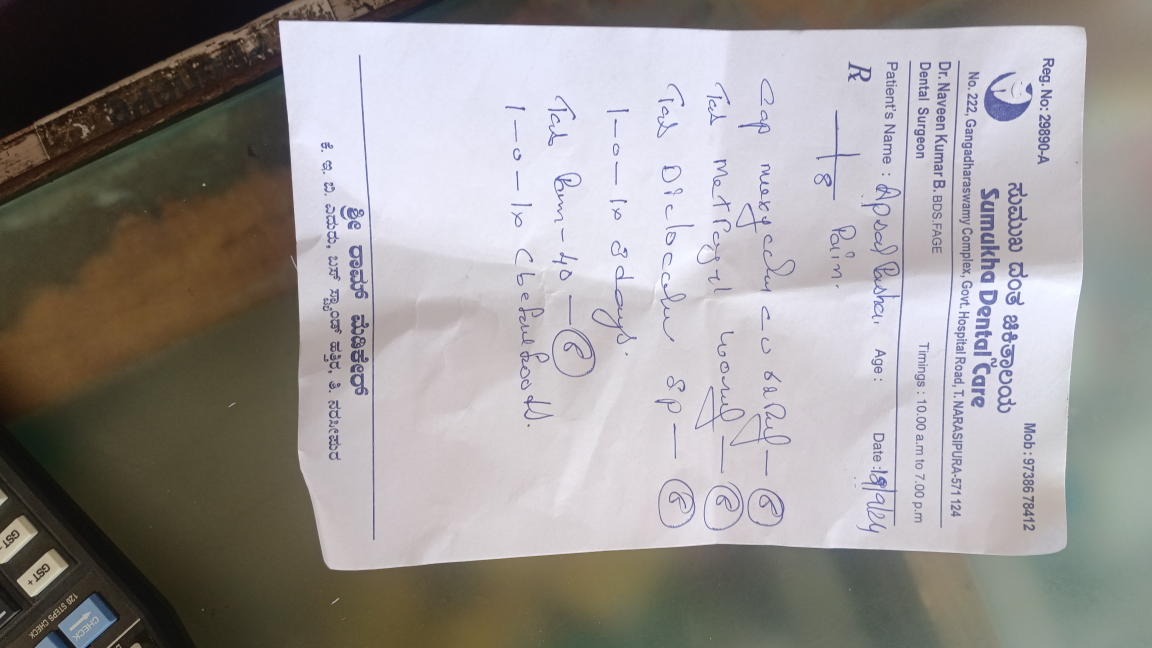 Reg. No: 29890-A
Mob : 97386 78412
ಸುಮುಖ ದಂತ ಚಿಕಿತ್ಸಾಲಯ
Sumukha Dental Care
No. 222, Gangadharaswamy Complex, Govt. Hospital Road, T.NARASIPURA-571 124
Dr. Naveen Kumar B. BDS.FAGE
Dental Surgeon
Timings : 10.00 a.m to 7.00 p.m
Patient's Name : Apsal Pasha, Age : Date : 18/9/24
R
8 Pain.
Cap
Tab Metrogyl 400mg — 6
Tab SP — 6
1-0-1x3days.
Tab 40 — 6
1-0-1x (before food).
ಶ್ರೀ ರಾಮ್ ಮೆಡಿಕೇರ್
ಕೆ. ಇ. ಬಿ. ಎದುರು, ಬಸ್ ಸ್ಟ್ಯಾಂಡ್ ಹತ್ತಿರ, ತಿ. ನರಸೀಪುರ
GST-
GST+
120 STEPS CHECK
CHECK